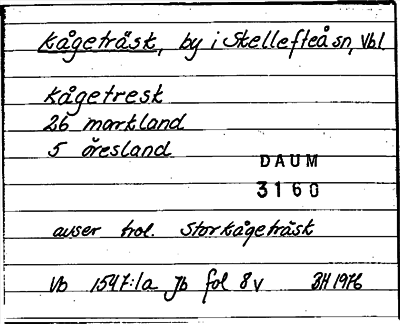 Kågeträsk, by i Skellefteå sn, Vbl
Kågetresk
26 markland
5 öresland
DAUM
3160
avser trol. Storkågeträsk
Vb 1547:1a Jb fol 8v BH 1976